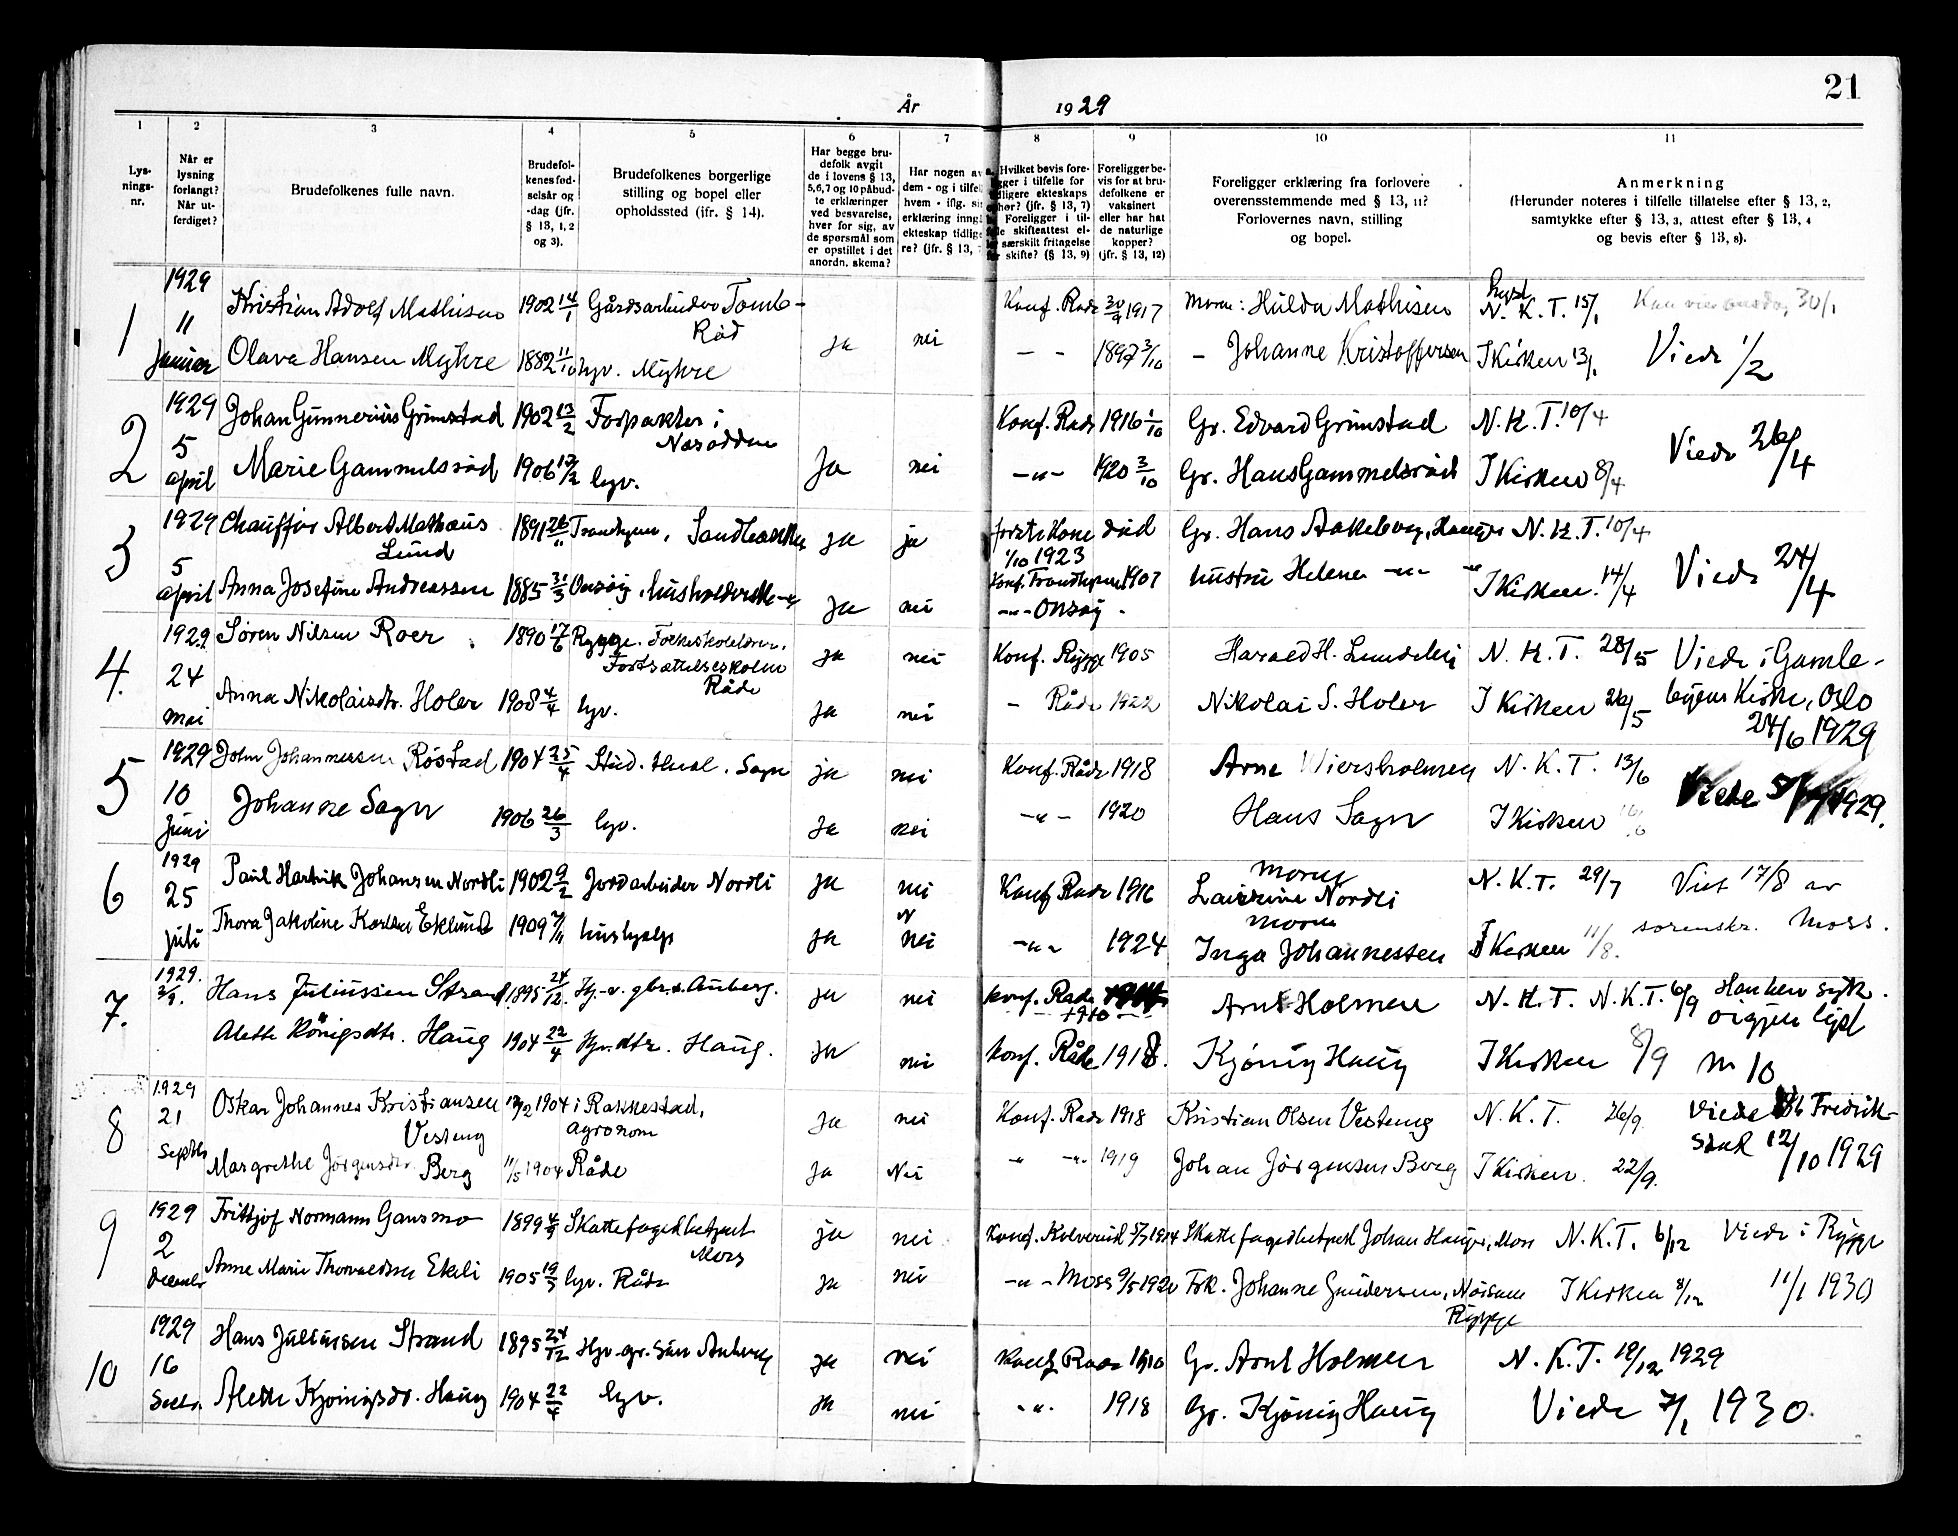 21
År 1929
1 2 3 4 5 6 7 8 9 10 11
Lys-
nings-
nr.
Når er
lysning
forlangt?
Når ut-
ferdiget?
Brudefolkenes fulle navn.
Brudefol-
kenes fød-
selsår og
-dag (jfr.
§ 13, 1, 2
og 3).
Brudefolkenes borgerlige
stilling og bopel eller
opholdssted (ifr. § 14).
Har begge bru-
defolk avgit
de i lovens § 13,
5,6,7 og 10 påbud-
te erklæringer
ved besvarelse,
hver for sig, av
de spørsmål som
er opstillet i det
anordn. skema?
Har nogen av
dem - og i tilfel
hvem - iflg. sin
erklæring inng
ekteskap tidlig
re? (jfr. § 13,
Hvilket bevis fore-
gger i tilfelle for
dligere ekteskaps
pher? (jfr. § 13, 7)
Foreligger i til-
le skifteattest el-
særskilt fritagelse
skifte? (§ 13, 9)
Foreligger be-
vis for at bru-
defolkene er
vaksinert
eller har hat
de naturlige
kopper?
(jfr. § 13, 12)
Foreligger erklæring fra forlovere
overensstemmende med § 13, 11?
Forlovernes navn, stilling
og bopel.
Anmerkning
(Herunder noteres i tilfelle tillatelse efter § 13, 2,
samtykke efter § 13, 3, attest efter § 13, 4
og bevis efter § 13, 8).
1 1929 11 Januar
Kristian Adolf Mathisen 1902 14/1 Gårdsarbeider Tomb - Råd ja nei Konf. Rade 30/9 1917 Moren: Hulda Mathisen lyst N. K. T. 15/1 30/1
Olava Hansen Myhre 1882 11/10 hjv. Myhre - - 1897 3/10 - Johanne Kristoffersen I Kirken 13/1 Viede 1/2
2 1929 5 april
Johan Gunnerius Grimstad 1902 13/2 Forpakter i Nesodden Konf. Rade 1916 1/10 Gr. Edvard Grimstad N. K. T. 10/4
Marie Gammelsrød 1906 17/2 hjv. Ja nei -"- 1920 3/10 Gr. Hans Gammelsrød I Kirken 8/4 Viede 26/4
3 1929 5 april
Chauffør Albert Mathæus Lund 1891 26/11 Trondhjem, Sandbakken ja ja første Kone død 1/10 1923 Konf. Trondhjem 1907 Gr. Hans Aakeberg, Hauge N. K. T. 10/4
Anna Josefine Andreassen 1885 31/3 Onsøy, husholderske Ja nei -"- Onsøy - hustru Helene -"- I Kirken 14/4 Viede 24/4
4. 1929 24 mai
Søren Nilsen Roer 1890 17/6 Rygge. Folkeskolelærer, Fortsættelsesskolen Råde ja nei Konf. Rygge 1905 Harald H. Lundeby N. K. T. 28/5 Viede i Gamle-
Anna Nikolaisdtr. Holer 1908 4/4 hjv. ja nei - Råde 1922 Nikolai S. Holer I Kirken 26/5 byens Kirke, Oslo
24/6 1929
5 1929 10 juni
John Johannessen Røstad 1904 25/4 Stud. Sogn ja nei Konf. Råde 1918 Arne Wiersholmen N. K. T. 13/6
Johanne Sogn 1906 26/3 hjv. ja nei -"- 1920 Hans Sogn I Kirken Viede 1929.
6 1929 25 juli
Paul Hartvik Johansen Nordli 1902 9/2 Jordarbeider Nordli ja nei Konf Rade 1916 Moren Laurine Nordli N. K. T. 29/7 Viet 17/8 av
Thora Jakobine Karlsen Eklund 1909 7/11 hushjelp ja nei -"- 1924 Moren Inga Johannessen I Kirken 11/8. sorenskr. Moss.
7. 1929. 2/9.
Hans Juliussen Strand 1895 24/12. Hj.-v. gbr.s. Auberg. ja nei konf. Rade 1910 Arnt Holmen N. K. T. N. K. T. 6/9 Han blev syk.
Alette Königsdtr. Haug 1904 22/4 Hjv. dtr. Haug. ja nei konf. Råde 1918. Kjönig Haug I Kirken 8/9 oigjen lyst
nr 10
8 1929 21 Septbr
Oskar Johannes Kristiansen Vesteng 12/2 1904 i Rakkestad, agronom ja nei Konf. Rade 1918 Kristian Olsen Vesteng N. K. T. 26/9 Viede Fredrik-
Margrethe Jörgensdtr. Berg 11/5 1904 Råde ja Nei " -"- 1919 Johan Jörgensen Berg I Kirken. 22/9. stad 12/10 1929
9 1929 2 Decembr
Frittjof Normann Gansmo 1899 4/9 Skattefogedbetjent Moss ja nei Konf. Kolvereid 5/7 1914 Skattefogedbetjent Johan Hauge, Moss N. K. T. 6/12 Viede i Rygge
Anne Marie Thorvaldsen Ekeli 1905 19/3 hjv. Råde ja nei -"- Moss 9/5 1920 Frk. Johanne Gundersen, Rygge I Kirken 8/12 11/1 1930
10 1929 16
Hans Juliussen Strand 1895 24/12 Hjv. gr. søn Auberg ja nei konf. Råde 1910 Gr. Arnt Holmen N. K. T. 19/12 1929
Alette Kjönigsdtr. Haug 1904 22/4 hjv. ja nei -"- 1918 Gr. Kjönig Haug Viede 7/1 1930.